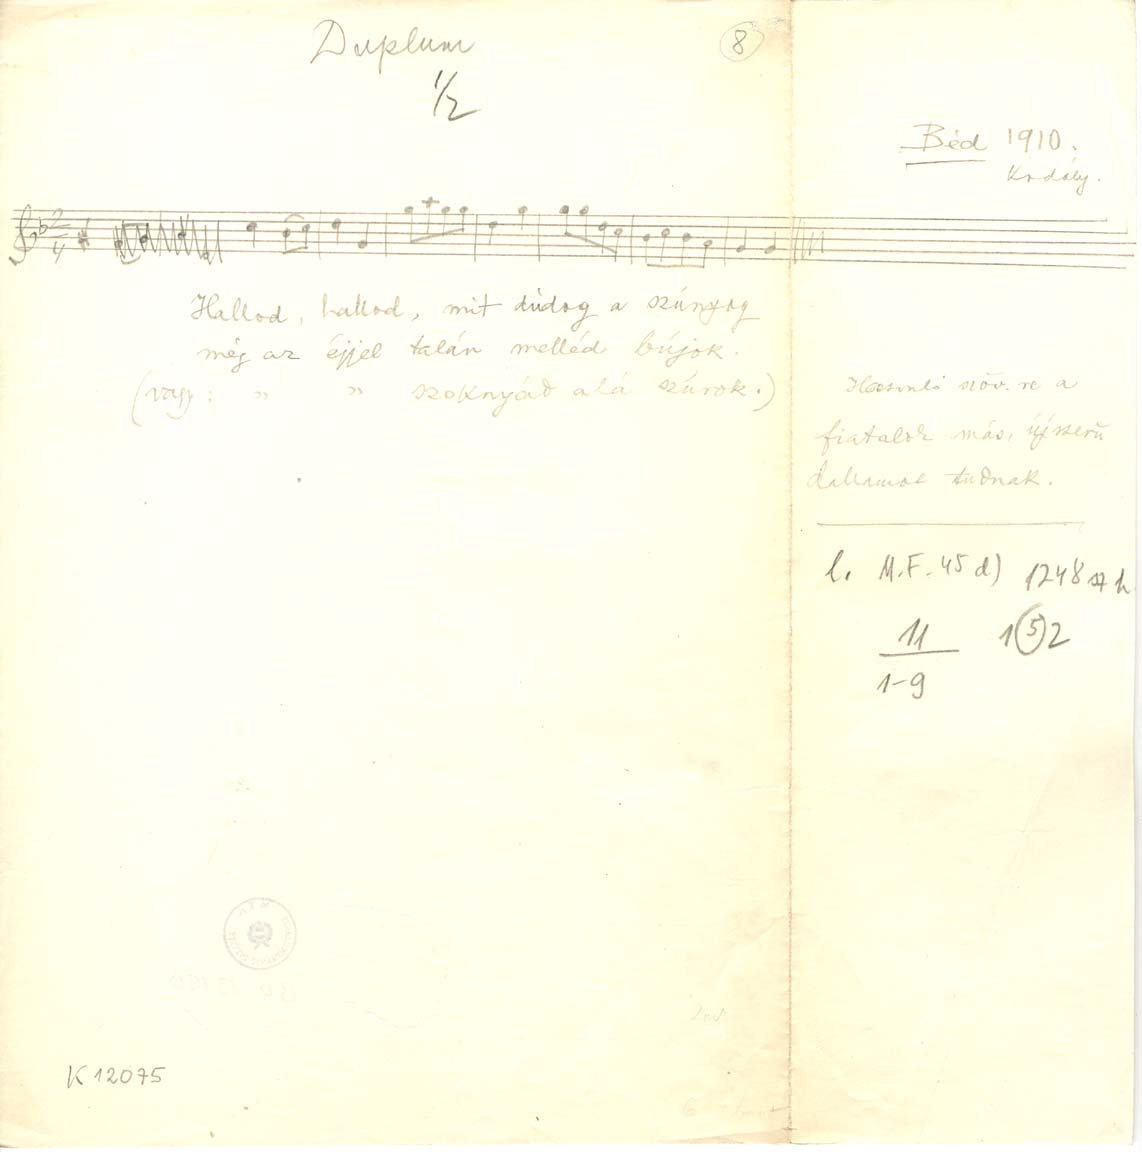 Duplum
8
1/2
Béd 1910.
Kodály.
2
4
Hallod, hallod, mit dúdog a szúnyog
még az éjjel talán melléd bújok.
(vagy: " " szoknyád alá szúrok.)
Hasonló szöv. re a
fiatalok más, újszerű
dallamot tudnak.
l. M.F. 45 d) 1248 sz h
11 1(5)2
1-9
K 12075